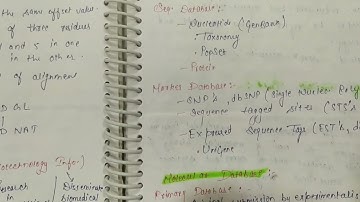 the same offset value
of three residues
1 and 5 in one
in the other.
of alignment
D GL
D NAT
Biotechnology Info.)
Research in
Disseminate
biomedical
Seq. Database:
- Nucleotide (GenBank)
• Taxonomy
• PopSet
- Protein
Marker Database:
- SNP's, dbSNP (Single Nucleo. Poly
- Sequence tagged sites (STS's
- Expressed Sequence Tags (EST's, d
• UniGene
Database
Primary Database:
submission by experimentalis